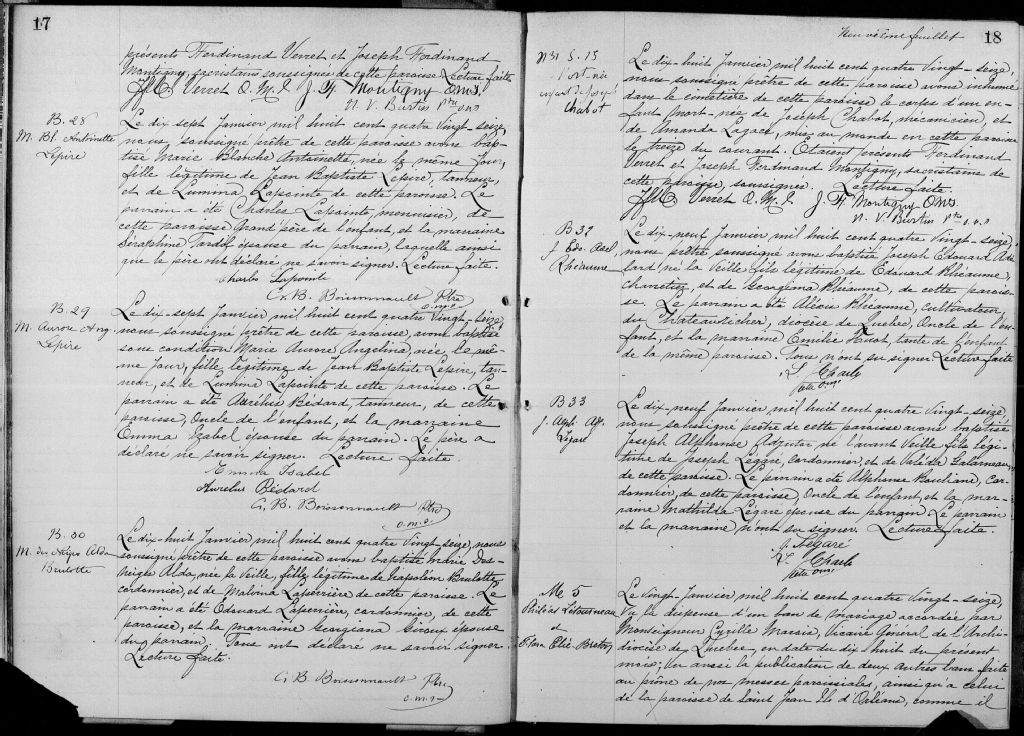 17
présents Ferdinand Verret et Joseph Ferdinand
Montigny, sacristains soussignés de cette paroisse Lecture faite
Verret O. M. I. J. F. Montigny O.M.I.
N. V. Burtin Ptre o.m.i
B. 28
M. Bl. Antoinette
Lepire
Le dix sept Janvier mil huit cent quatre Vingt-seize,
nous, soussigné prêtre de cette paroisse avons bap-
tisé Marie Blanche Antoinette, née le même Jour,
fille légitime de Jean Baptiste Lepire, tanneur,
et de Lumina Lapointe de cette paroisse. Le
parrain a été Charles Lapointe, menuisier, de
cette paroisse Grand'père de l'enfant, et la marraine
Séraphine Tardif épouse du parrain, laquelle ainsi
que le père ont déclaré ne savoir signer. Lecture faite.
Charles Lapointe
G. B. Boissonnault Ptre
o.m.i.
B. 29
M. Aurore Ang.
Lepire
Le dix-sept Janvier mil huit cent quatre Vingt-seize,
nous soussigné prêtre de cette paroisse, avons baptisé
sous condition Marie Aurore Angelina, née le mê-
me Jour, fille légitime de Jean Baptiste Lepire, tan-
neur, et de Lumina Lapointe de cette paroisse. Le
parrain a été Aurélius Bédard, tanneur, de cette
paroisse, Oncle de l'enfant, et la marraine
Emma Isabel épouse du parrain. Le père a
déclaré ne savoir signer. Lecture faite.
Emma Isabel
Aurelius Bédard
G. B. Boissonnault Ptre
o.m.i.
B. 30
M. des Neiges Alda
Brulotte
Le dix-huit Janvier mil huit cent quatre Vingt-seize, nous
soussigné prêtre de cette paroisse avons baptisé Marie Des-
neiges Alda, née la Veille, fille légitime de Napoléon Brulotte
cordonnier, et de Malvina Laperrière de cette paroisse. Le
parrain a été Edouard Laperrière, cordonnier, de cette
paroisse, et la marraine Georgiana Giroux épouse
du parrain. Tous ont déclaré ne savoir signer.
Lecture faite.
G. B Boissonnault Ptre
o.m.i
Neuvième feuillet
18
N° 31 S. 15
Mort-née
enfant de Joseph
Chabot
Le dix-huit Janvier mil huit cent quatre Vingt-seize,
nous soussigné prêtre de cette paroisse avons inhumé
dans le cimetière de cette paroisse le corps d'un en-
fant mort-née de Joseph Chabot, mécanicien, et
de Amanda Lagacé, mis au monde en cette paroisse
le treize du courant. Etaient présents Ferdinand
Verret et Joseph Ferdinand Montigny, sacristains de
cette paroisse, soussignés. Lecture faite.
Verret O. M. I. J. F. Montigny OMI.
N. V. Burtin Ptre o.m.i
B 32
J. Ed. Abel.
Rhéaume
Le dix-neuf Janvier mil huit cent quatre Vingt-seize,
nous prêtre soussigné avons baptisé Joseph Edouard Adé
lard né la Veille fils légitime de Edouard Rhéaume,
charretier, et de Georgiana Rhéaume, de cette parois-
se. Le parrain a été Alexis Rhéaume, cultivateur
du Chateauricher, diocèse de Quebec, Oncle de l'en-
fant, et la marraine Emilie Huot, tante de l'enfant
de la même paroisse. Tous n'ont su signer Lecture faite
Ptre Omi
B 33
J. Alph. Adj.
Légaré
Le dix-neuf Janvier mil huit cent quatre Vingt-seize,
nous soussigné prêtre de cette paroisse avons baptisé
Joseph Alphonse Adjutor né l'avant Veille fils légi-
time de Joseph Légaré, cordonnier, et de
de cette paroisse. Le parrain a été Alphonse Bouchard, Cor-
donnier, de cette paroisse, Oncle de l'enfant et la mar-
raine Mathilda Légaré épouse du parrain. Le parrain
et la marraine n'ont su signer. Lecture faite.
J. Légaré
Ptre omi
Me 5
Philéas Létourneau
et
Le Vingt Janvier mil huit cent quatre Vingt-seize,
Vu la dispense d'un ban de mariage accordée par
Monseigneur Cyrille Marois, Vicaire Général de l'Archi-
diocèse de Quebec, en date du dix-huit du présent
mois; Vu aussi la publication de deux autres bans faite
au prône de nos messes paroissiales, ainsi qu'à celui
de la paroisse de Saint Jean Ile d'Orléans, comme il